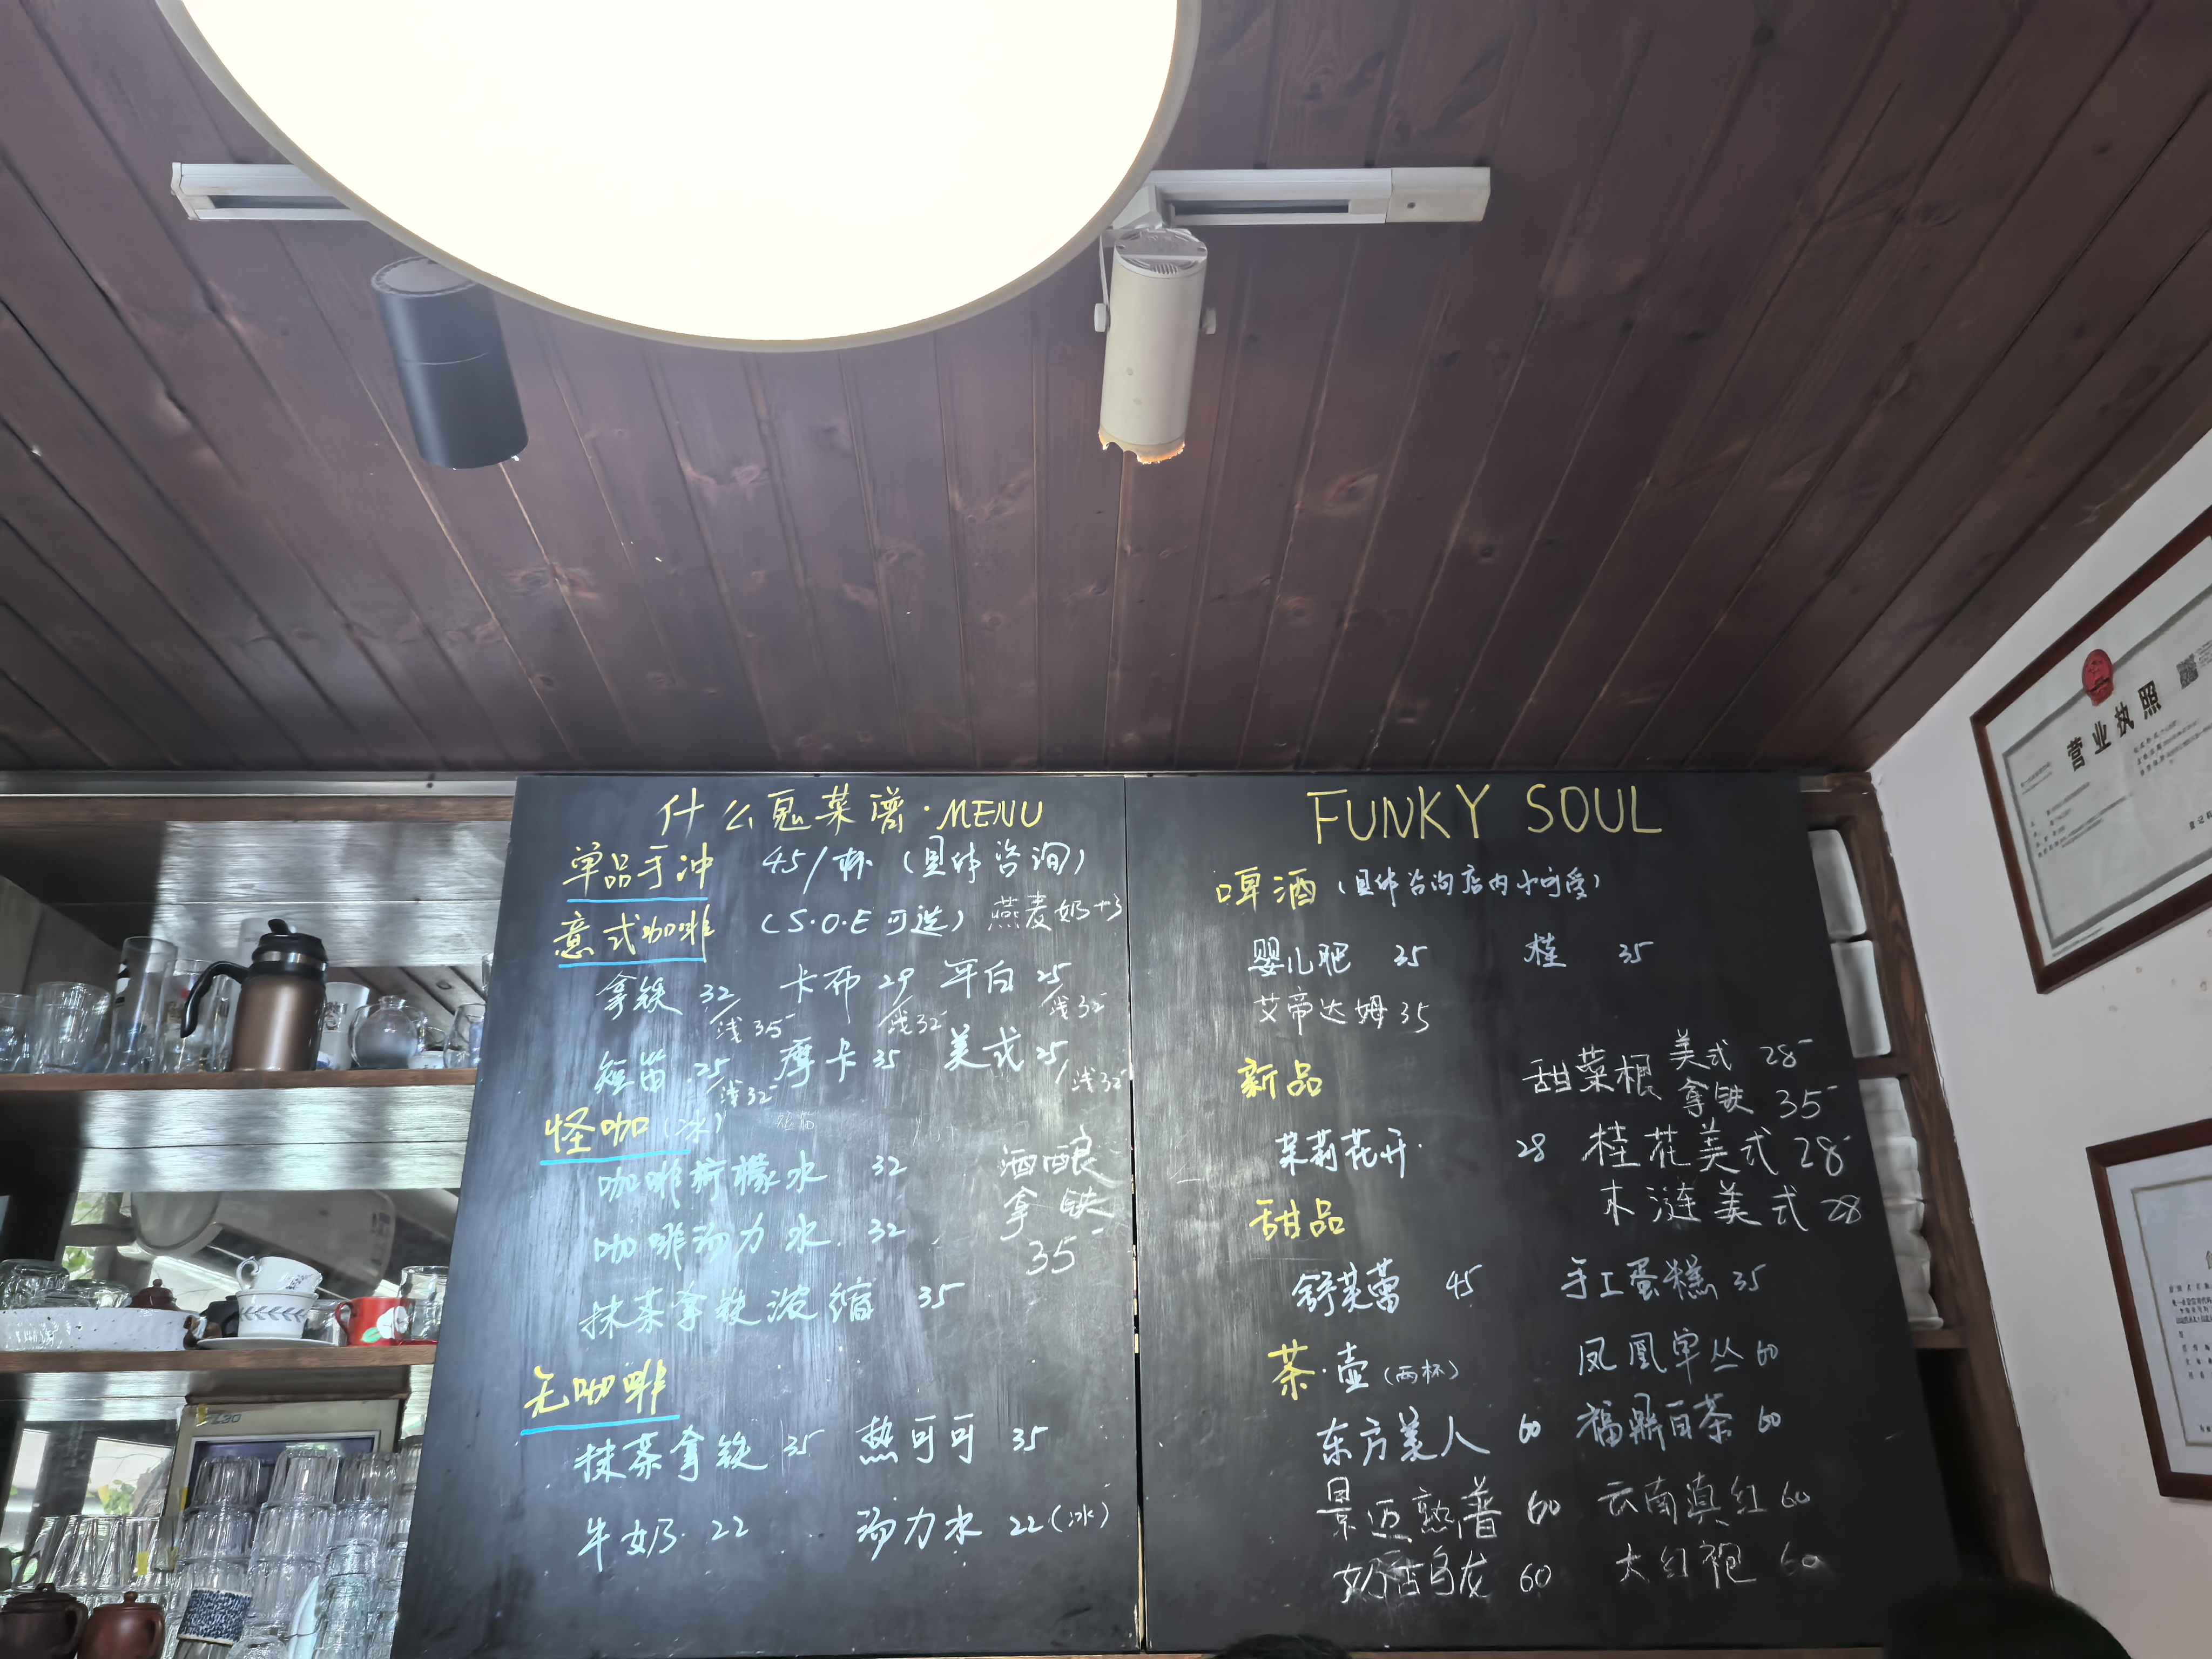 什么鬼菜谱·MENU
单品手冲 45/杯 (具体咨询)
意式咖啡 (S.O.E可选) 燕麦奶+3
拿铁 32/浅35 卡布 29/浅32 平白 25/浅32
短笛 25/浅32 摩卡 35 美式 25/浅32
怪咖 (冰)
咖啡柠檬水 32
咖啡汤力水 32
抹茶拿铁浓缩 35
酒酿
拿铁
35
无咖啡
抹茶拿铁 35 热可可 35
牛奶 22 汤力水 22(冰)
FUNKY SOUL
啤酒 (具体咨询店内小可爱)
婴儿肥 35 桂 35
艾帝达姆 35
新品 甜菜根 美式 28
拿铁 35
茉莉花开 28 桂花美式 28
木涟美式 28
甜品
舒芙蕾 45 手工蛋糕 35
茶·壶 (两杯) 凤凰单丛 60
东方美人 60 福鼎白茶 60
景迈熟普 60 云南滇红 60
奶香乌龙 60 大红袍 60
营业执照